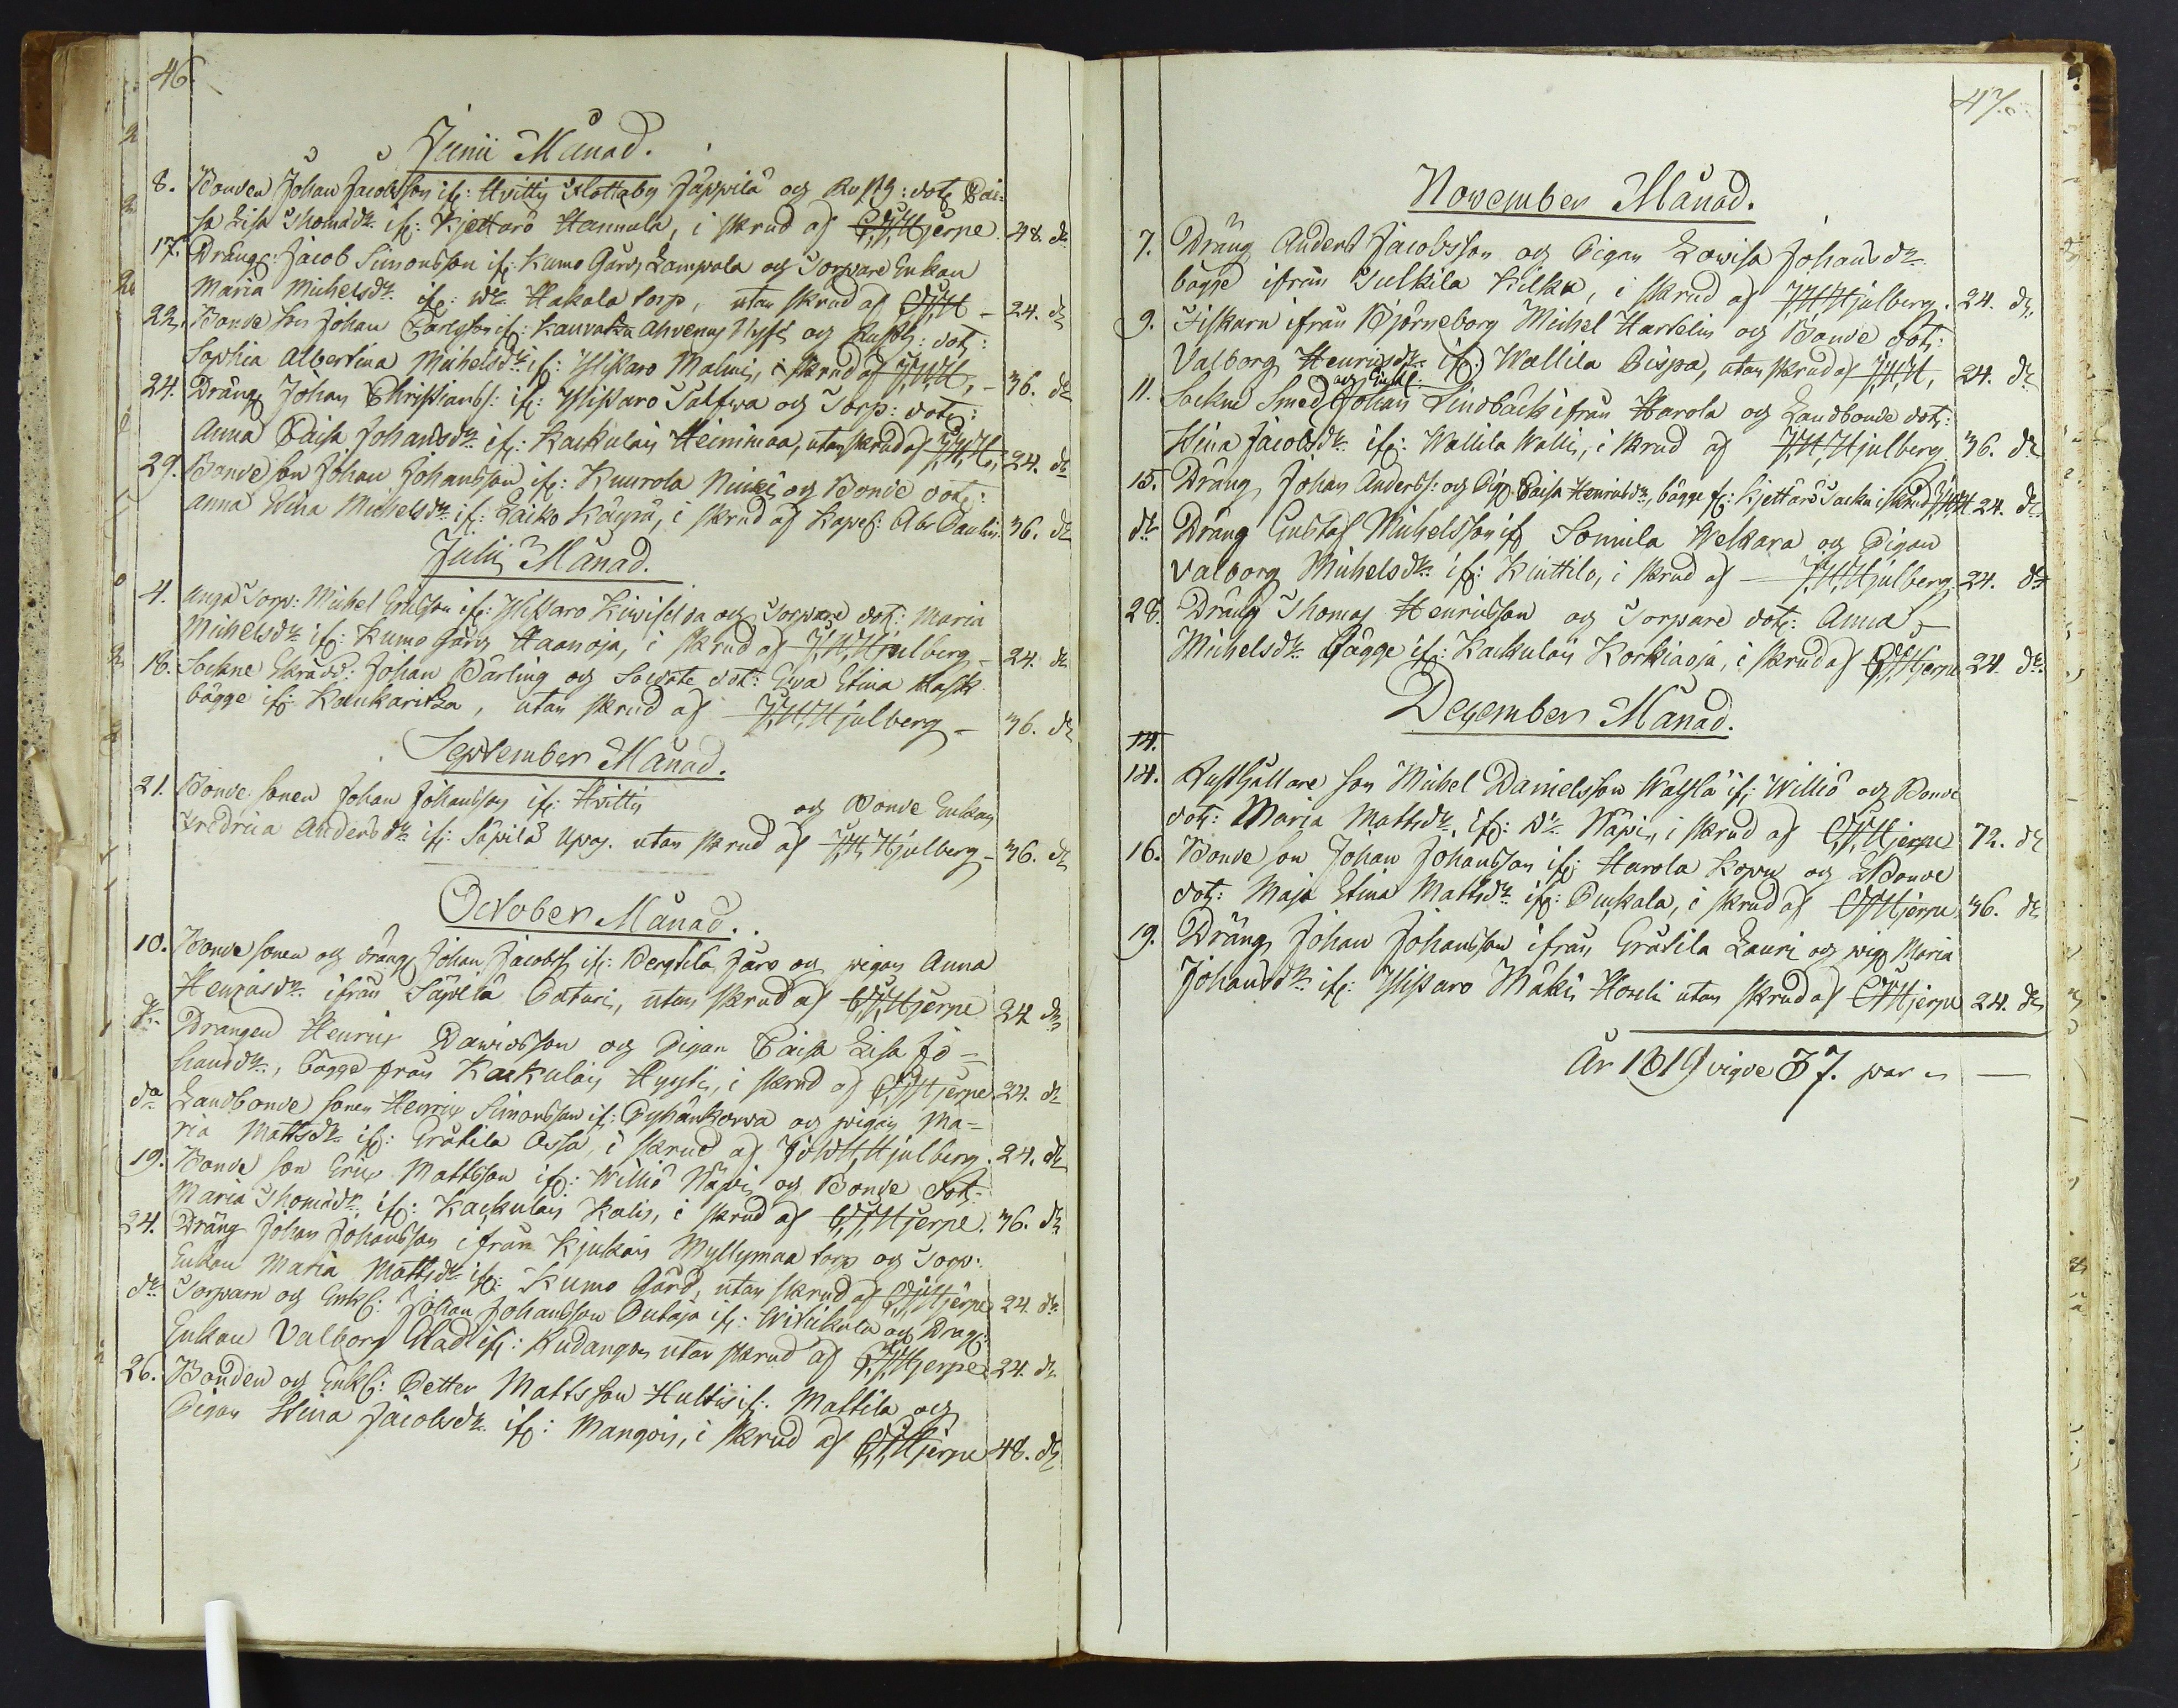 46.
Junii Månad.
8. Bonden Johan Jacobsson if: Hvittis Hottaby Jäppilä og Rusth: dotr Cai=
sa Lisa Thomasdr if: Kjettarö Hannula, i skrud af C,J,Hjerpe 48. dr
17. Dräng: Jacob Simonsson if: Kumo Gård Lampola og Torpare Enkan
Maria Michelsdr if: Dr Hakala torp, utan skrud af CJH - 24. dr
22. Bonde son Johan Carlsson if: Kauvatza Ahvenus Uusi og Rusth: dotr:
Sophia Albertina Michelsdr if: Ylistaro Malmi, i skrud af J,W,H, - 36. dr
24. Dräng Johan Christians: if: Ylistaro Talfva og Torp: dotr:
Anna Caisa Johansdr if: Kackulais Heinimaa, utan skrud af J,W,H, 24. dr
29. Bonde son Johan Johansson if: Kuurola Ninni og Bonde dotr:
Anna Stina Michelsdr if: Laiko Käyrä, i skrud af Kapel: Abr Paulin. 36. dr
Julii Månad.
4. unga Torp: Michel Ericsson if: Ylistaro Kivisilda og Torpare dotr: Maria
Michelsdr if: Kumo Gård Haanoja, i skrud af J,W,Hjulberg - 24. dr
18. Sockne Skrädd: Johan Bärling og Soldate dotr: Eva Stina Rask
bägge if: Kaukaritza, utan skrud af J,W,Hjulberg - 36. dr
September Månad.
21. Bonde sonen Johan Johansson if: Hvittis og Bonde Enkan
Fredrica Andersdr if: Säpilä Uppa. utan skrud af J,W, Hjulberg - 36. dr
October Månad.
10. Bonde sonen og dräng Johan Jacobss if: Bergtila Jaro og pigan Anna
Henricsdr ifrån Säpilä Caturi, utan skrud af CJ,Hjerpe 24 dr
dr Drängen Henric Davidsson og Pigan Caisa Lisa Jo=
hansdr, bägge från Kackulais Hyysti, i skrud af C,J,Hjerpe 24. dr
do Landbonde sonen Henric Simonsson if: Pyhänkorva og pigan Ma=
ria Mattsdr if: Gråtila Ossa, i skrud af JoWH, Hjulberg. 24. dr
19. Bonde son Eric Mattsson if: Williö Näpi og Bonde dotr:
Maria Thomasdr if: Kackulais Kalis, i skrud af C,J,Hjerpe. 36. dr
24. Dräng Johan Johansson ifrån Kjukais Myllymaa torp og Torp:
Enkan Maria Mattsdr if: Kumo Gård, utan skrud af C,J,Hjerpe 24. dr
dr Torparn og Enkl: Johan Johansson Ontaja if: Wiikula og Drag:
Enkan Valborg Glad if: Rudanson utan skrud af C,J,Hjerpe 24. dr
26. Bonden og Enkl: Petter Mattsson Hultis if: Mattila og
Pigan Stina Jacobsdr if: Mangois, i skrud af C,J,Hjerpe 48. dr
47.
November Månad.
7. Dräng Anders Jacobsson og Pigan Lovisa Johansdr
bägge ifrån Sulkila Kilkku, i skrud af J,W,Hjulberg. 24. dr
9. Fiskarn ifrån Björneborg Michel Hartelin og Bonde dotr:
Valborg Henricsdr if: Wallila Pispa, utan skrud af J,W,H, 24. dr
11. Sockne Smed og Enkl: Johan Lindbäck ifrån Harola og Landbonde dotr:
Stina Jacobsdr if: Wallila Walli, i skrud af J,W,Hjulberg. 36. dr
15. Dräng Johan Anders: og Pig: Caisa Henricsdr, bägge if: Kjettarö Jaska i skrud J,W,H 24. dr
dr Dräng Gustaf Michelsson if Somila Welkara og Pigan
Valborg Michelsdr if: Kinttilo, i skrud af - J,W,Hjulberg 24. dr
28. Dräng Thomas Henricsson og Torpare dotr: Anna
Michelsdr bägge if: Kackulais Korkiaoja, i skrud af C,J,Hjerpe 24. dr
December Månad.
14.
14. Rusthållare son Michel Danielsson Wälylä if: Williö og Bonde
dotr: Maria Mattsdr, if: Dr Näpi, i skrud af C,J,Hjerpe 72. dr
16. Bonde son Johan Johansson if: Harola Kopu og Bonde
dotr: Maja Stina Mattsdr if: Penkala, i skrud af CJHjerpe 36. dr
19. Dräng Johan Johansson ifrån Gråtila Lauri og pig: Maria
Johansdr if: Ylistaro Mäki Hoseli utan skrud af CJHjerpe 24. dr
År 1819 vigde 37. par -